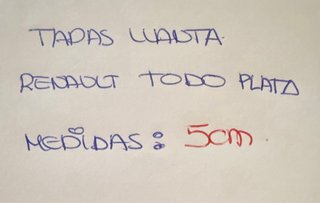 TAPAS LLANTA.
RENAULT TODO PLATA
MEDIDAS: 5cm.